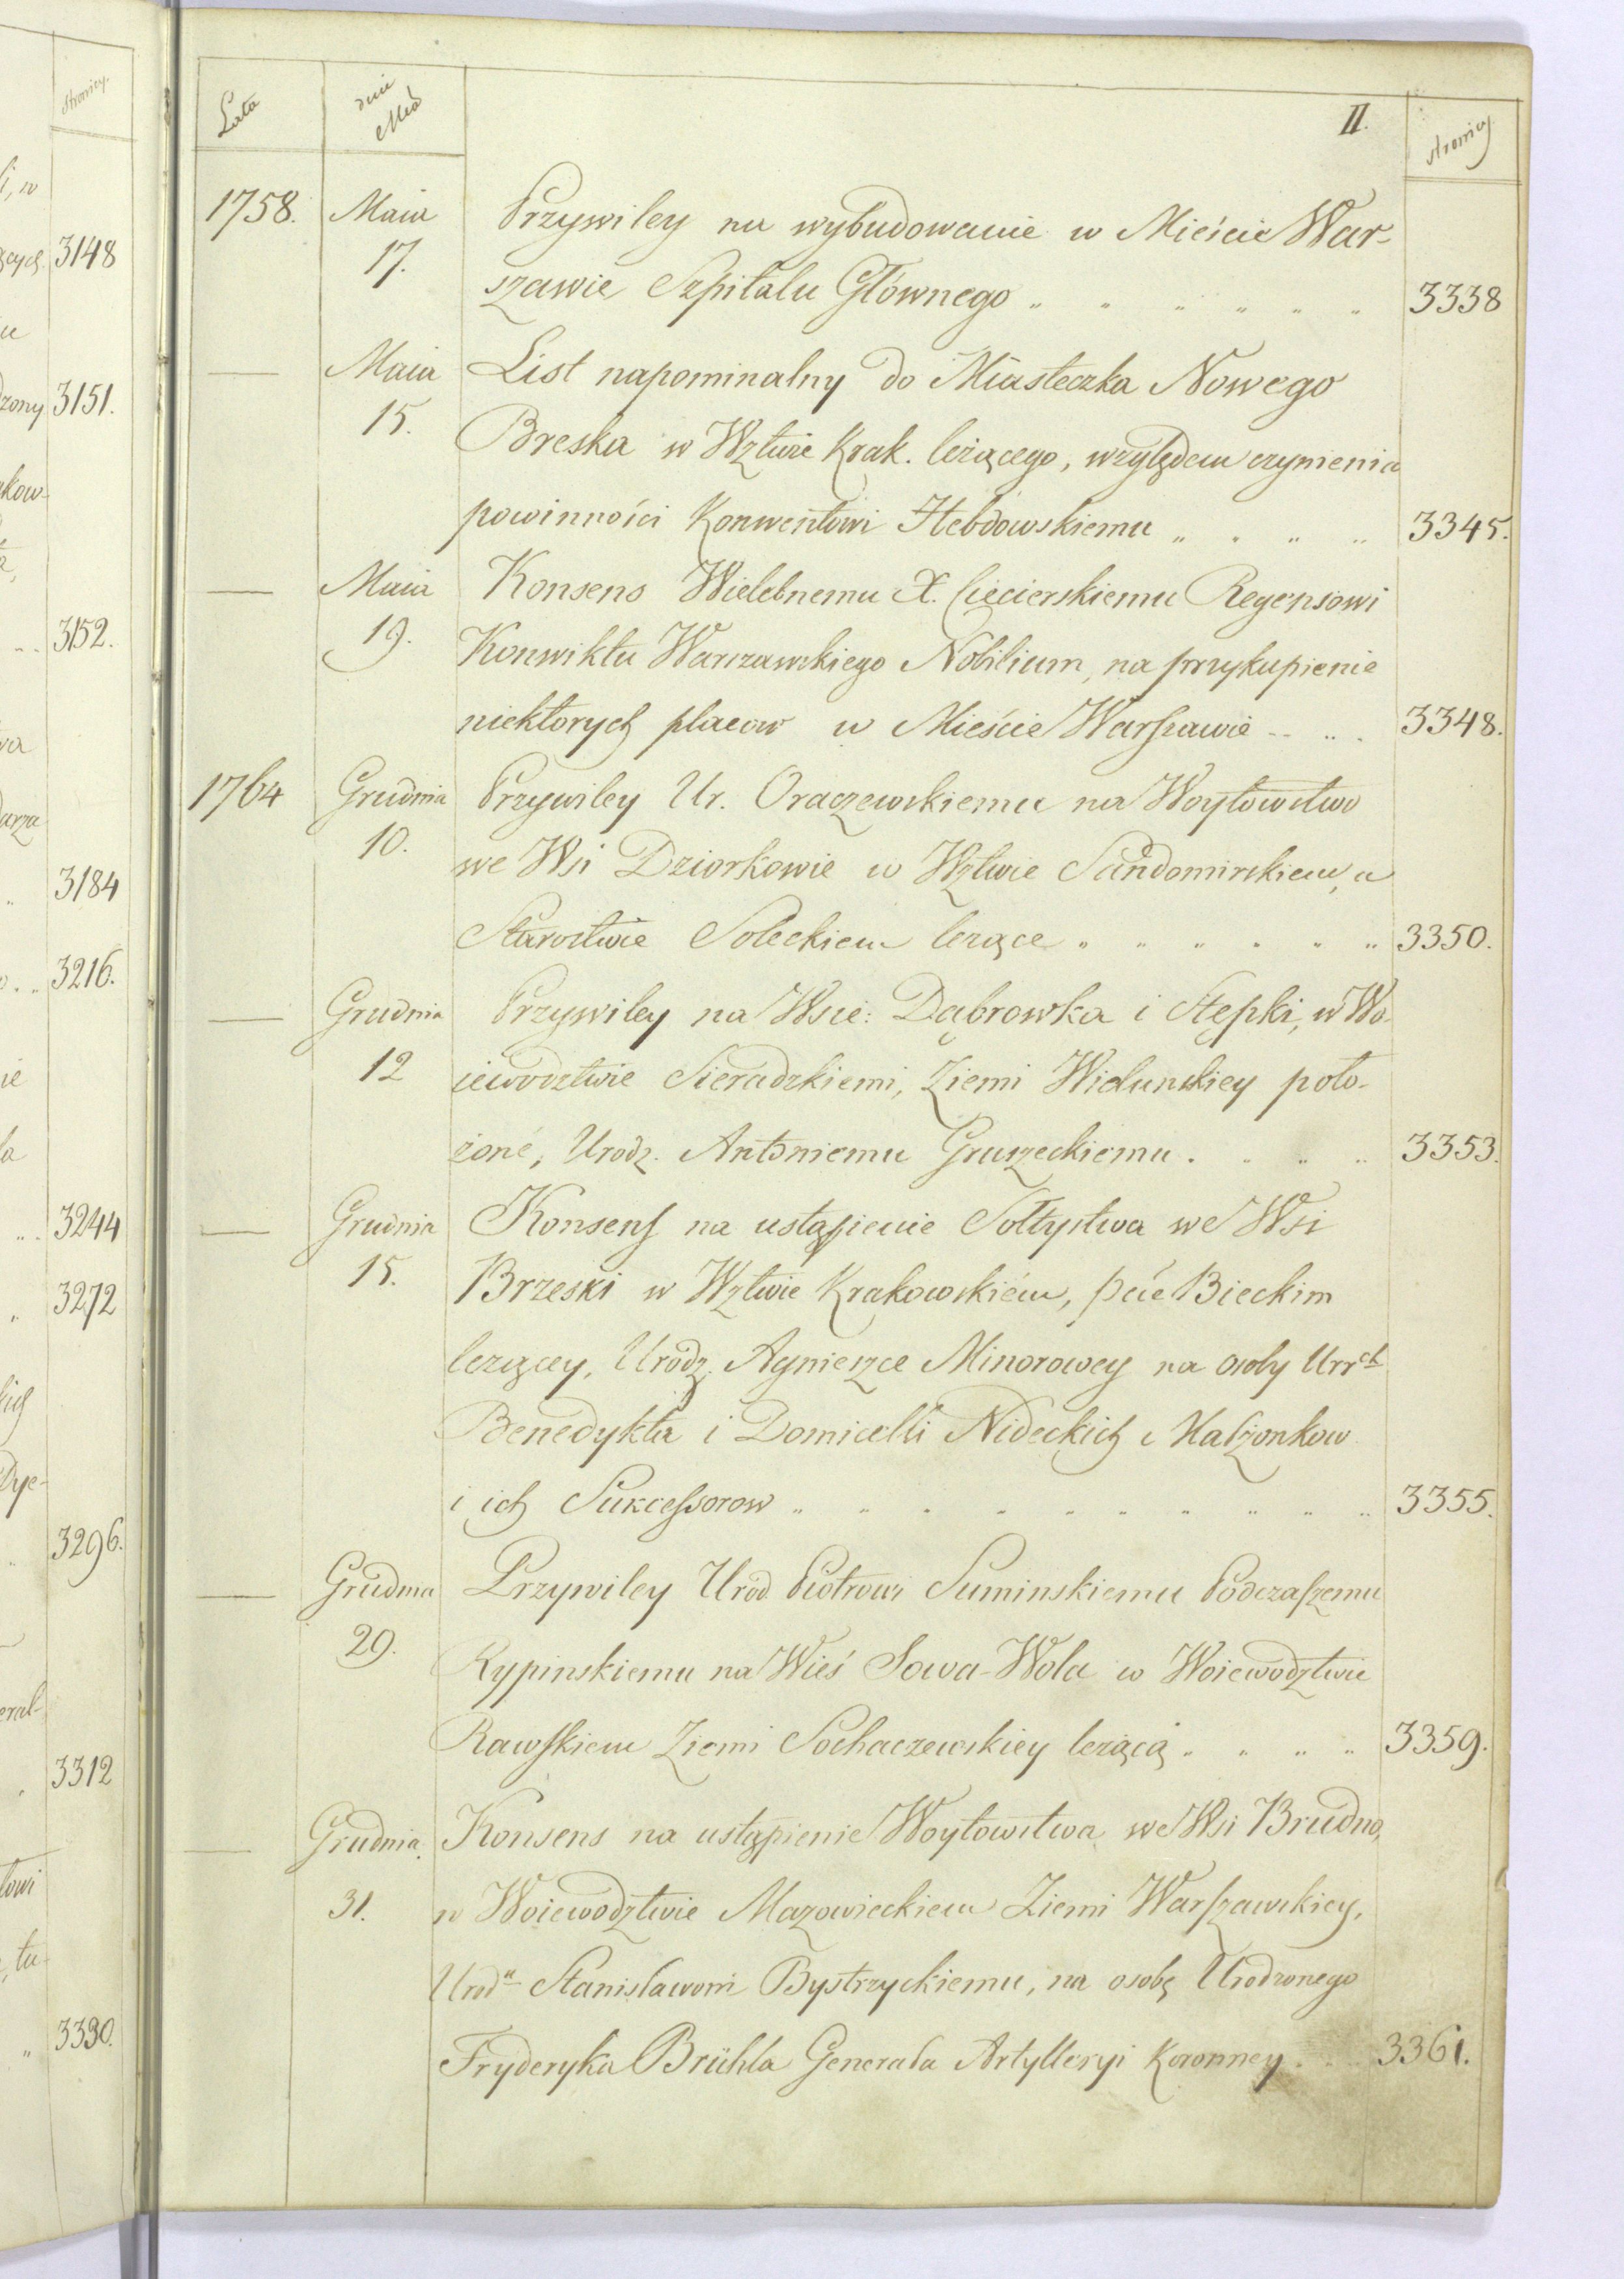 stronicy
i, w
3148
u
3151.
zony
kow-
3152.
va
arza
3184
3216.
ie
la
3244
3272
Dye-
3296.
eral-
3312
towi
, tu-
3330.
Lata
dnie Mca
II.
stronicy
1758. Maia Przywiley na wybudowanie w Mieście War-
17. szawie Szpitalu Głównego 3338
— Maia List napominalny do Miasteczka Nowego
15. Breska w Wztwie Krak. leżącego, względem czynienia
powinności Konwentowi Hebdowskiemu 3345.
— Maia Konsens Wielebnemu X. Ciecierskiemu Regensowi
19. Konwiktu Warszawskiego Nobilium, na przykupienie
niektorych placow w Mieście Warszawie 3348.
1764 Grudnia Przywiley Ur. Oraczewskiemu na Woytowstwo
10. we Wsi Dziorkowie w Wztwie Sandomirskiem, a
Starostwie Soleckiem lezące 3350.
— Grudnia Przywiley na Wsie: Dąbrowka i Stępki, w Wo-
12 iewodztwie Sieradzkiemi, Ziemi Wielunskiey poło-
żone, Urodz. Antoniemu Gruszeckiemu 3353.
— Grudnia Konsens na ustąpienie Sołtystwa we Wsi
15. Brzeski w Wztwie Krakowskiém, pcie Bieckim
lezącey, Urodz. Agnieszce Minorowey na osoby Urrch
Benedykta i Domicelli Nideckich Małżonkow
i ich Sukcessorow 3355.
— Grudnia Przywiley Urod. Piotrowi Suminskiemu Podczaszemu
29. Rypinskiemu na Wieś Sowa-Wola w Woiewodztwie
Rawskiem Ziemi Sochaczewskiey lezącą 3359.
— Grudnia Konsens na ustąpienie Woytowstwa we Wsi Brudno,
31. w Woiewodztwie Mazowieckiem Ziemi Warszawskiey,
Urodu Stanisławowi Bystrzyckiemu, na osobę Urodzonego
Fryderyka Brühla Generała Artylleryi Koronney 3361.